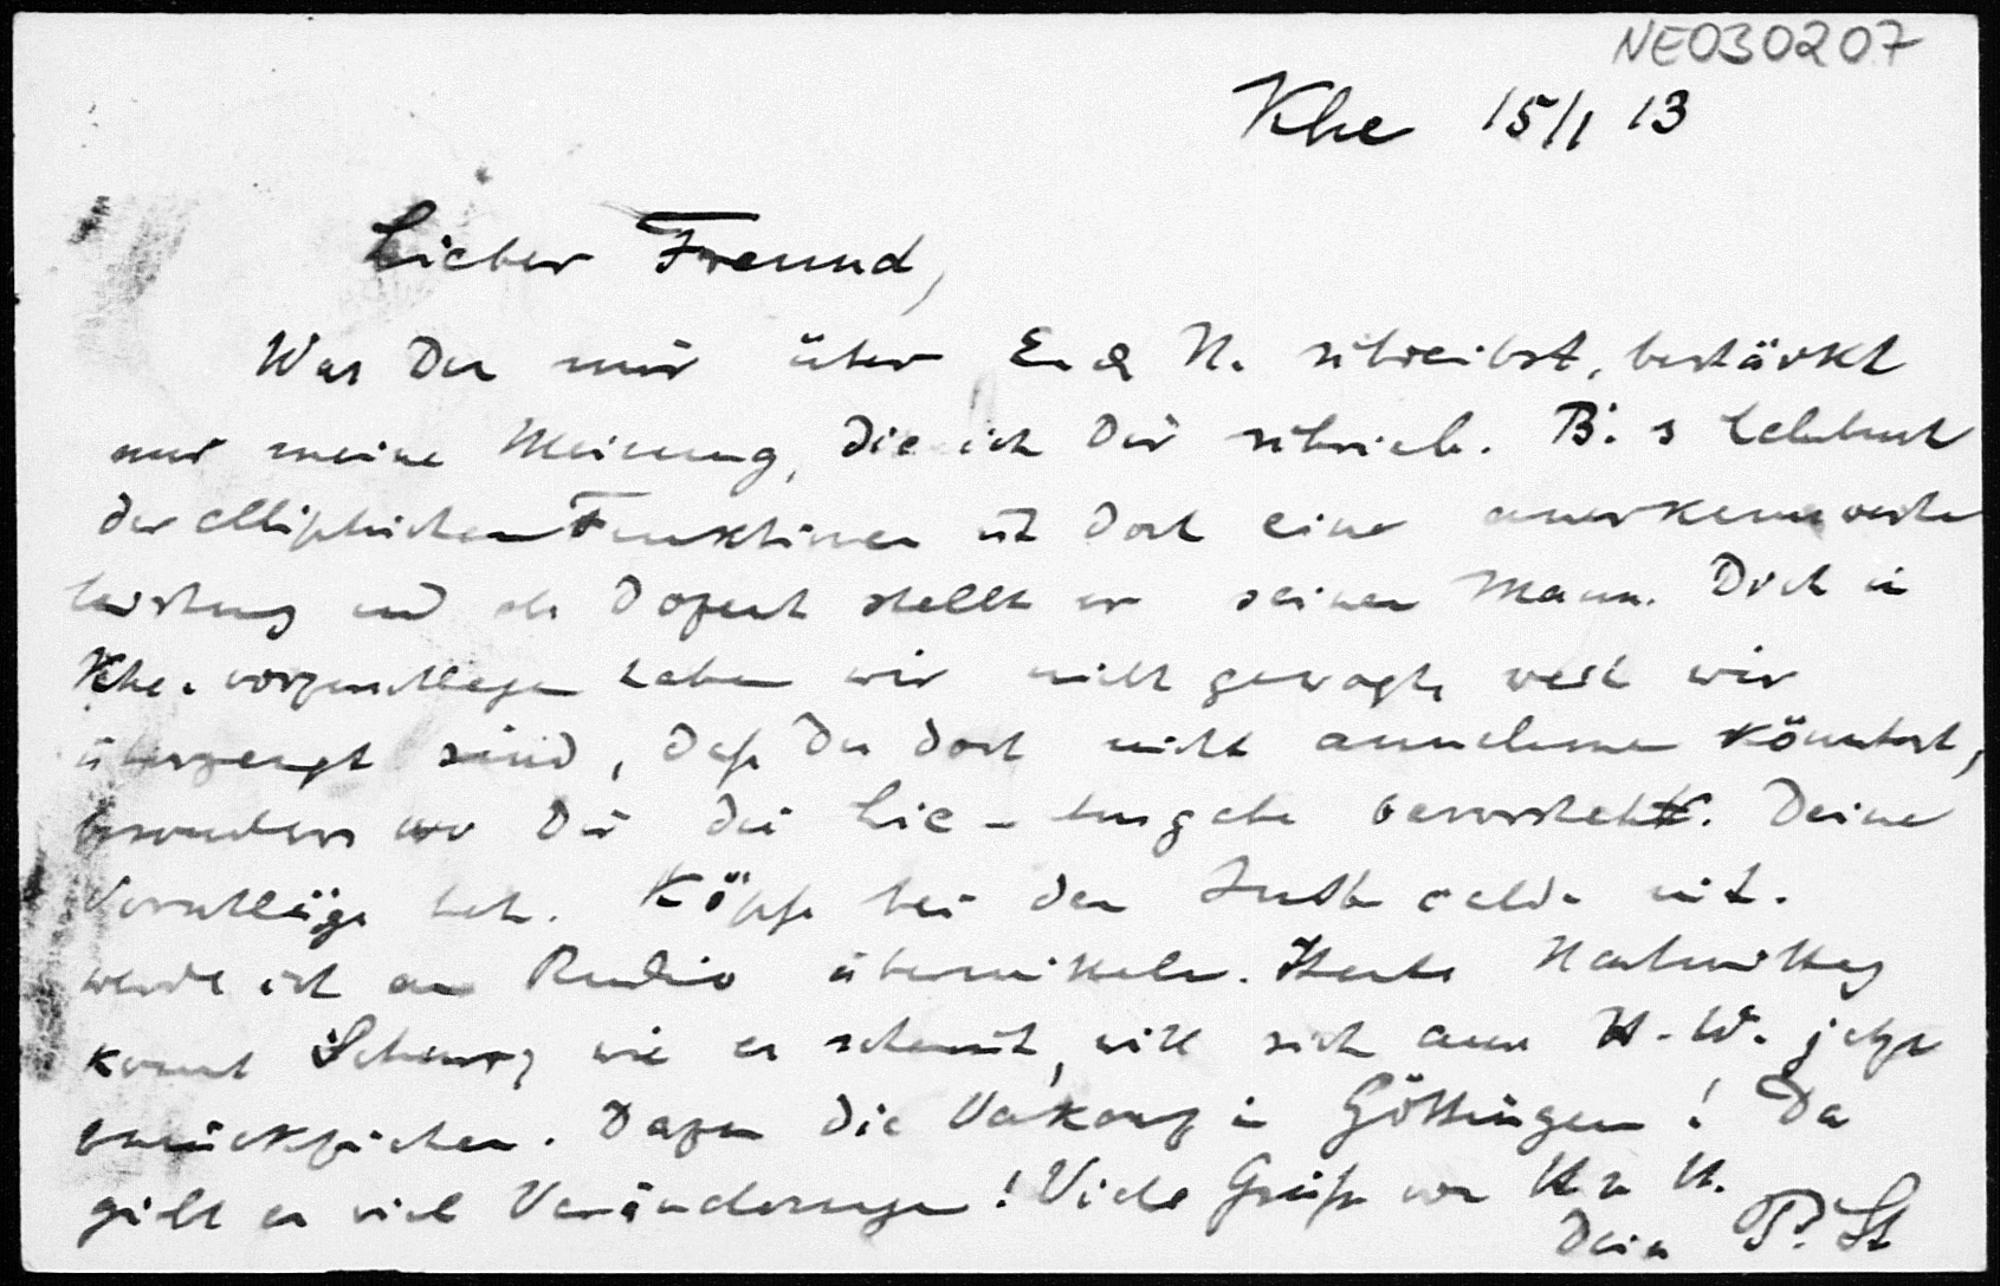 NE030207
Khe 15/1 13
Lieber Freund,
Was Du mir über E. & N. schreibst, bestärkt
nur meine Meinung, die ich Dir schrieb. B.'s Lehrbuch
der elliptischen Funktionen ist doch eine anerkennenswerte
Leistung und als Dozent stellt er seinen Mann. Dich in
Khe. vorzuschlagen haben wir nicht gewagt, weil wir
überzeugt sind, daß Du doch nicht annehmen könntest,
besonders wo Dir die Lie-Ausgabe bevorsteht. Deine
Vorschläge betr. Köpfe bei den
werde ich an Rudio übermitteln. Heute Nachmittag
kommt Schur, wie es scheint, will sich auch H. W. jetzt
zurückziehen. Dazu die Vakanz in Göttingen! Da
gibt es viel Veränderungen! Viele Grüße von H. z. H.
Dein P. St